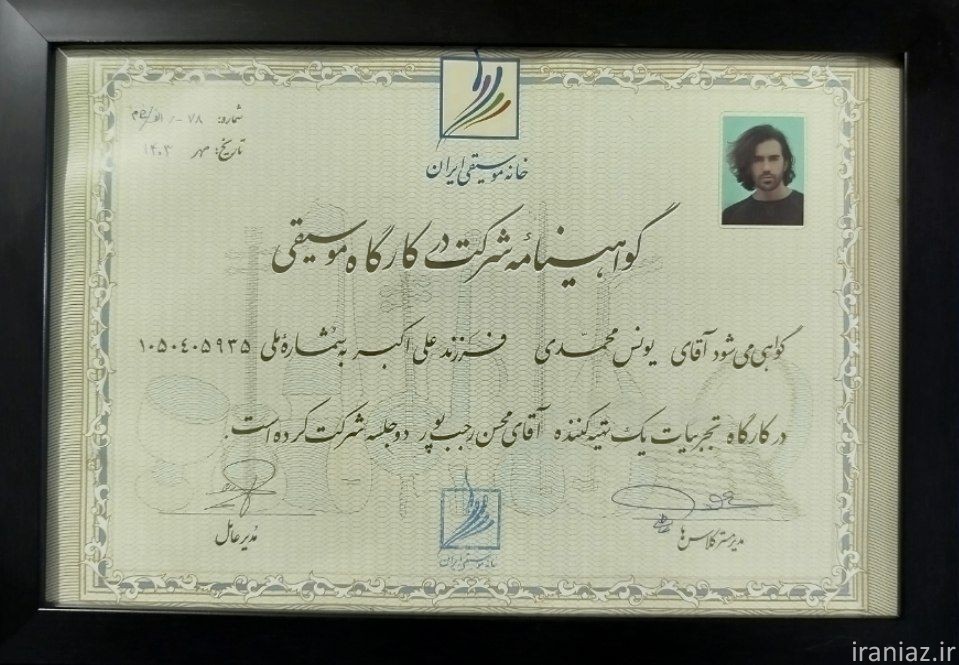 شماره: ۷۸
تاریخ: مهر ۱۴۰۳
خانه موسیقی ایران
گواهینامه شرکت در کارگاه موسیقی
گواهی می شود آقای یونس محمدی فرزند علی اکبر به شماره ملی ۱۰۵۰۴۰۵۹۳۵
در کارگاه تجربیات یک تهیه کننده آقای محسن رجب پور دو جلسه شرکت کرده است.
مدیر مسترکلاس ها
مدیر عامل
خانه موسیقی ایران
iraniaz.ir